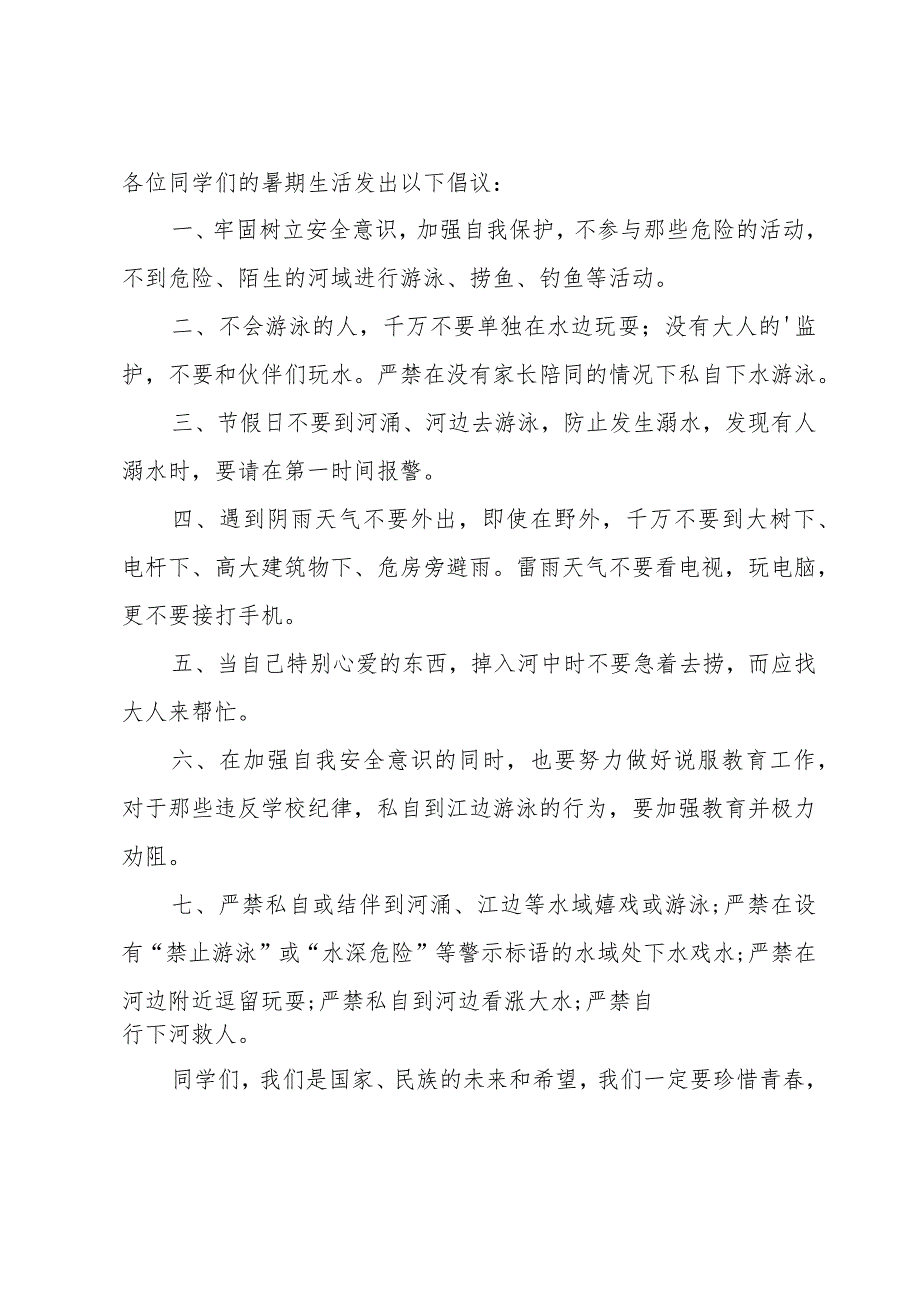 各位同学们的暑期生活发出以下倡议：
一、牢固树立安全意识，加强自我保护，不参与那些危险的活动，
不到危险、陌生的河域进行游泳、捞鱼、钓鱼等活动。
二、不会游泳的人，千万不要单独在水边玩耍；没有大人的'监
护，不要和伙伴们玩水。严禁在没有家长陪同的情况下私自下水游泳。
三、节假日不要到河涌、河边去游泳，防止发生溺水，发现有人
溺水时，要请在第一时间报警。
四、遇到阴雨天气不要外出，即使在野外，千万不要到大树下、
电杆下、高大建筑物下、危房旁避雨。雷雨天气不要看电视，玩电脑，
更不要接打手机。
五、当自己特别心爱的东西，掉入河中时不要急着去捞，而应找
大人来帮忙。
六、在加强自我安全意识的同时，也要努力做好说服教育工作，
对于那些违反学校纪律，私自到江边游泳的行为，要加强教育并极力
劝阻。
七、严禁私自或结伴到河涌、江边等水域嬉戏或游泳;严禁在设
有“禁止游泳”或“水深危险”等警示标语的水域处下水戏水;严禁在
河边附近逗留玩耍;严禁私自到河边看涨大水;严禁自
行下河救人。
同学们，我们是国家、民族的未来和希望，我们一定要珍惜青春，